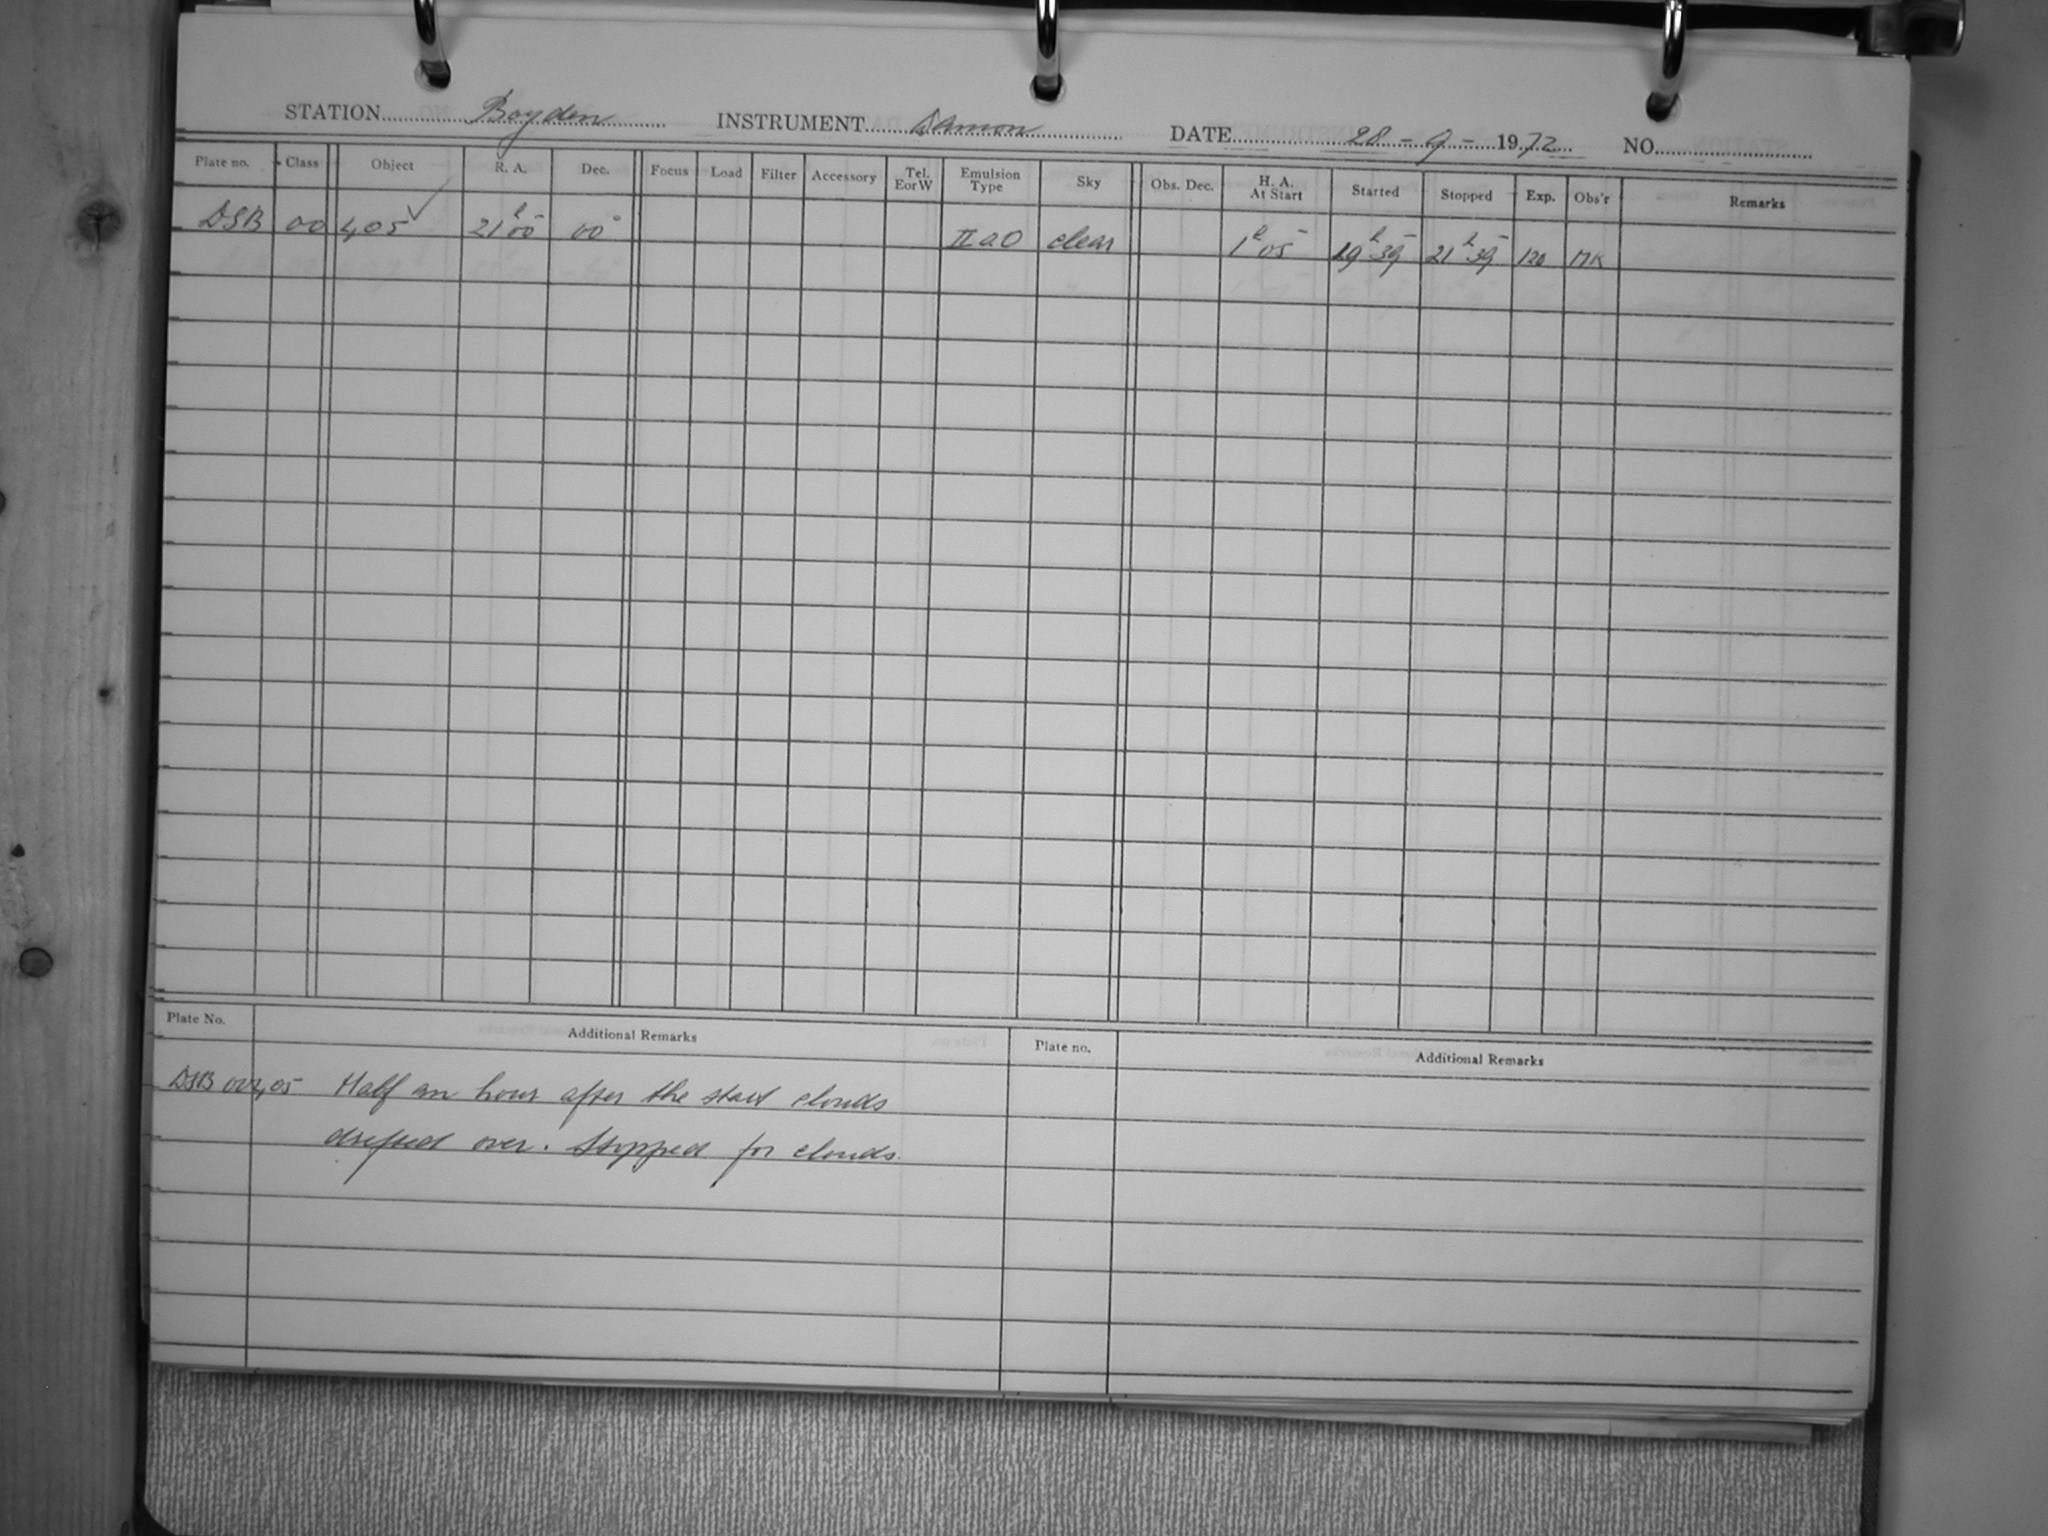 STATION Boyden INSTRUMENT Damon DATE 28 - 9 - 1972 NO.
Plate no. Class Object R. A. Dec. Focus Load Filter Accessory Tel. E or W Emulsion Type Sky Obs. Dec. H. A. At Start Started Stopped Exp. Obs'r Remarks
DSB 00 405 ✓ 21h 00 00° IIaO clear 1h 05 19h 39 21h 39 120 MK
Plate No. Additional Remarks Plate no. Additional Remarks
DSB 00405 Half an hour after the start clouds
drifted over. Stopped for clouds.